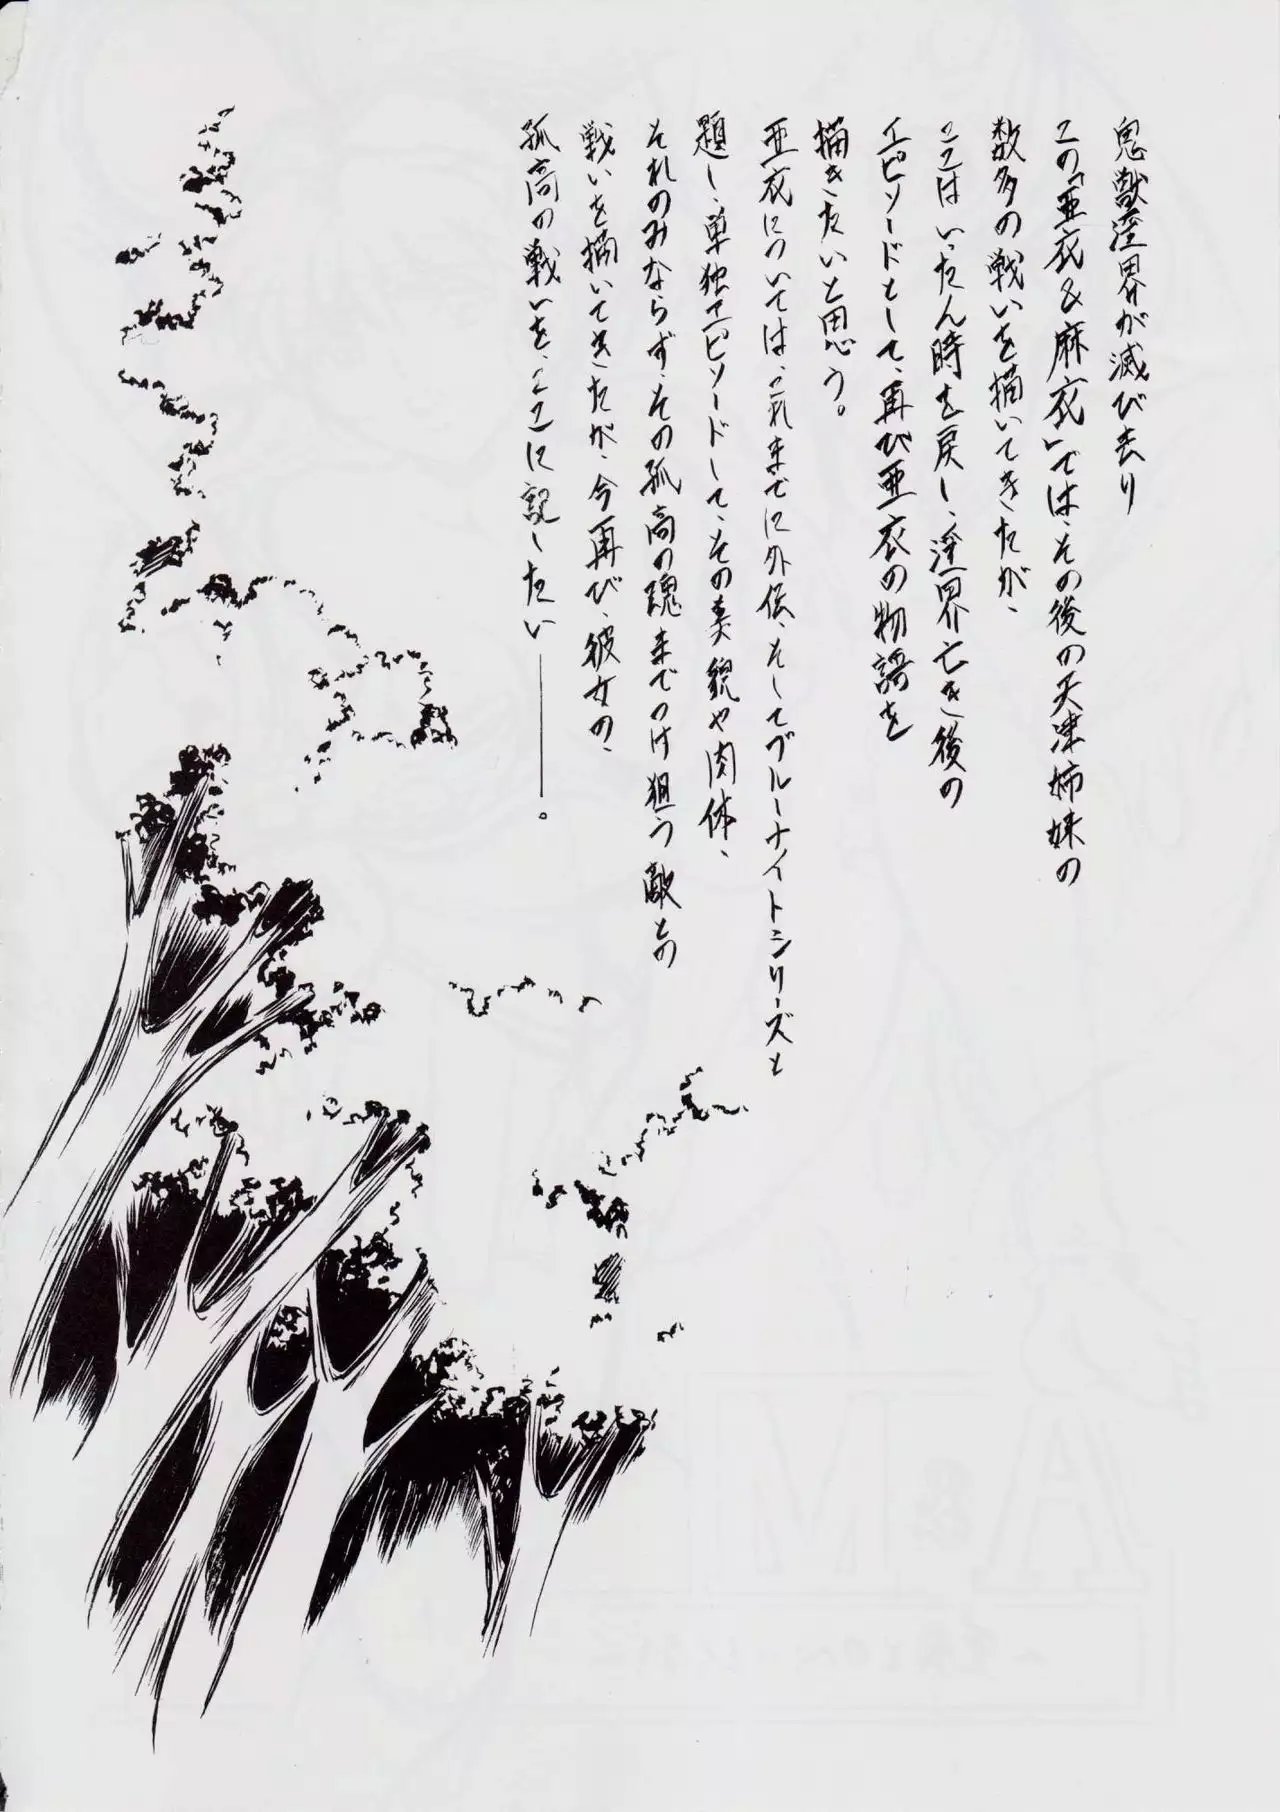 鬼獣淫界が滅び去り
この「亜衣&麻衣」では、その後の天津姉妹の
数多の戦いを描いてきたが、
ここはいったん時を戻し、淫界亡き後の
エピソードとして、再び亜衣の物語を
描きたいと思う。
亜衣については、これまでに外伝、そしてブルーナイトシリーズと
題し、単独エピソードして、その美貌や肉体、
それのみならず、その孤高の魂までつけ狙う敵との
戦いを描いてきたが、今再び、彼女の、
孤高の戦いを、ここに記したい――。